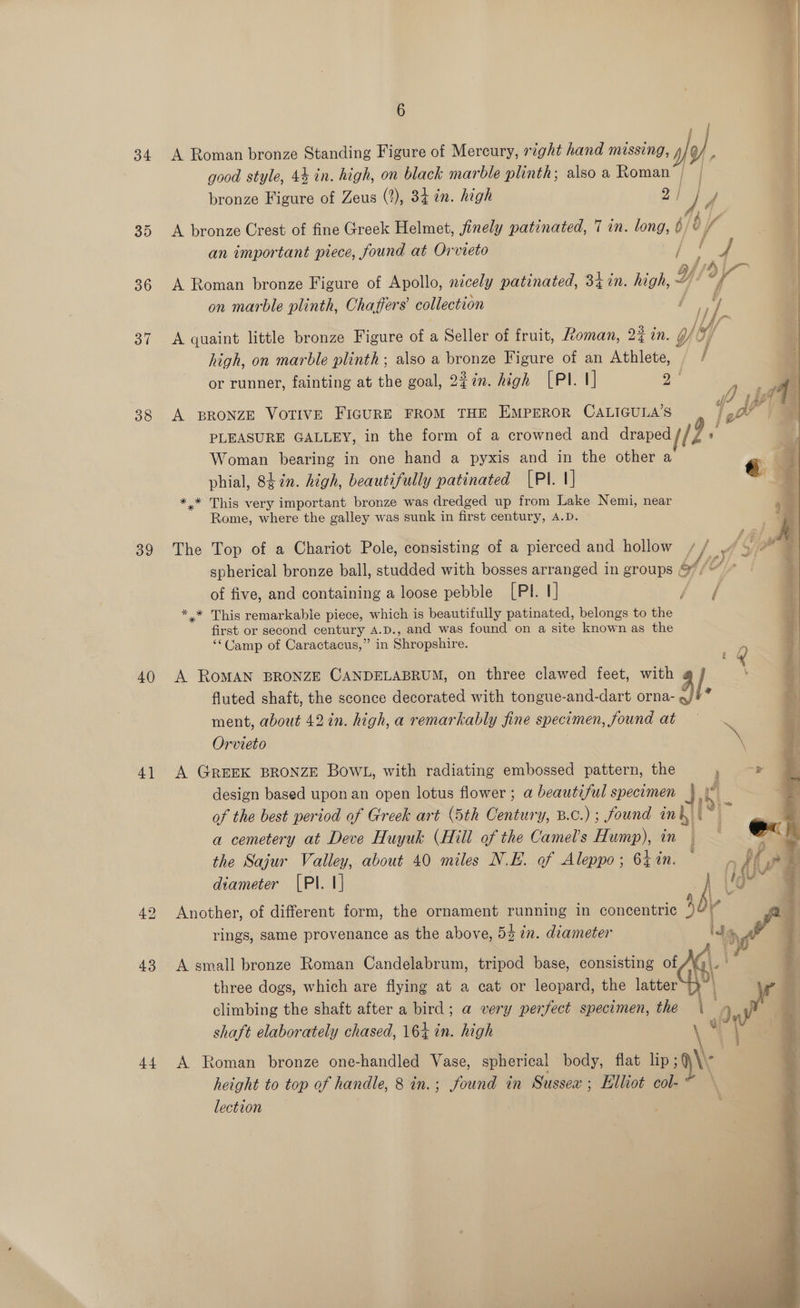 6
34 A Roman bronze Standing Figure of Mercury, right hand missing,
good style, 4½ in. high, on black marble plinth; also a Roman
bronze Figure of Zeus (?), 3¼ in. high 2
35 A bronze Crest of fine Greek Helmet, finely patinated, 7 in. long,
an important piece, found at Orvieto
36 A Roman bronze Figure of Apollo, nicely patinated, 3¼ in. high,
on marble plinth, Chaffers' collection
37 A quaint little bronze Figure of a Seller of fruit, Roman, 2¾ in.
high, on marble plinth; also a bronze Figure of an Athlete,
or runner, fainting at the goal, 2¾ in. high [Pl. I] 2
38 A BRONZE VOTIVE FIGURE FROM THE EMPEROR CALIGULA'S
PLEASURE GALLEY, in the form of a crowned and draped
Woman bearing in one hand a pyxis and in the other a
phial, 8½ in. high, beautifully patinated [Pl. I]
*⁎* This very important bronze was dredged up from Lake Nemi, near
Rome, where the galley was sunk in first century, A.D.
39 The Top of a Chariot Pole, consisting of a pierced and hollow
spherical bronze ball, studded with bosses arranged in groups
of five, and containing a loose pebble [Pl. I]
*⁎* This remarkable piece, which is beautifully patinated, belongs to the
first or second century A.D., and was found on a site known as the
"Camp of Caractacus," in Shropshire.
40 A ROMAN BRONZE CANDELABRUM, on three clawed feet, with
fluted shaft, the sconce decorated with tongue-and-dart orna-
ment, about 42 in. high, a remarkably fine specimen, found at
Orvieto
41 A GREEK BRONZE BOWL, with radiating embossed pattern, the
design based upon an open lotus flower; a beautiful specimen
of the best period of Greek art (5th Century, B.C.); found in
a cemetery at Deve Huyuk (Hill of the Camel's Hump), in
the Sajur Valley, about 40 miles N.E. of Aleppo; 6¼ in.
diameter [Pl. I]
42 Another, of different form, the ornament running in concentric
rings, same provenance as the above, 5¾ in. diameter
43 A small bronze Roman Candelabrum, tripod base, consisting of
three dogs, which are flying at a cat or leopard, the latter
climbing the shaft after a bird; a very perfect specimen, the
shaft elaborately chased, 16¼ in. high
44 A Roman bronze one-handled Vase, spherical body, flat lip;
height to top of handle, 8 in.; found in Sussex; Elliot col-
lection